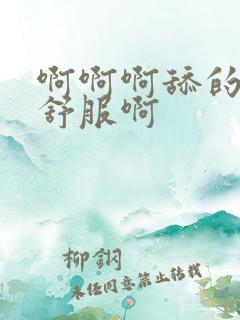 啊啊啊舔的
舒服啊
柳钢
未经同意禁止转载